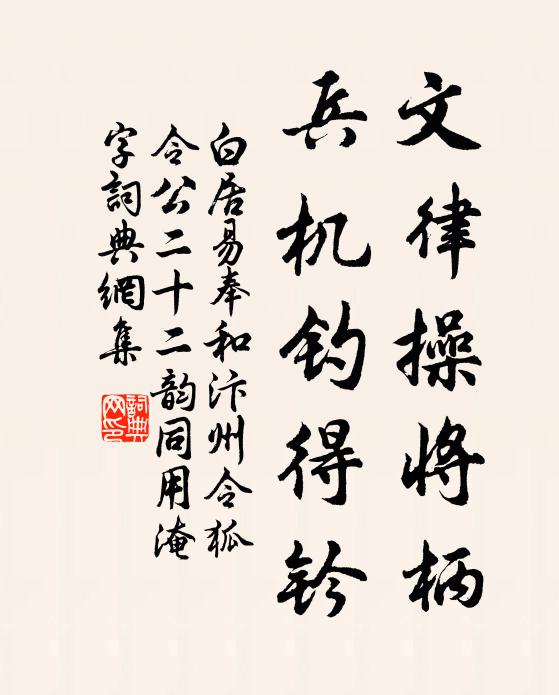 文律操将柄
兵机钓得钤
白居易奉和汴州令狐
令公二十二韵同用淹
字詞典網集
詞典
网印